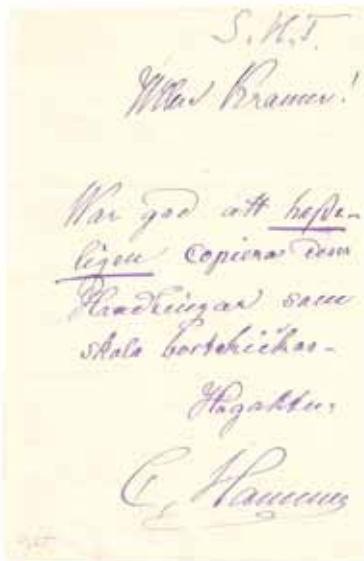 S. H. T.
Kramer!
War god att hasti-
ligen copiera dom
Handlingar som
skola bortskickas.
Högaktn.
C. Hammer